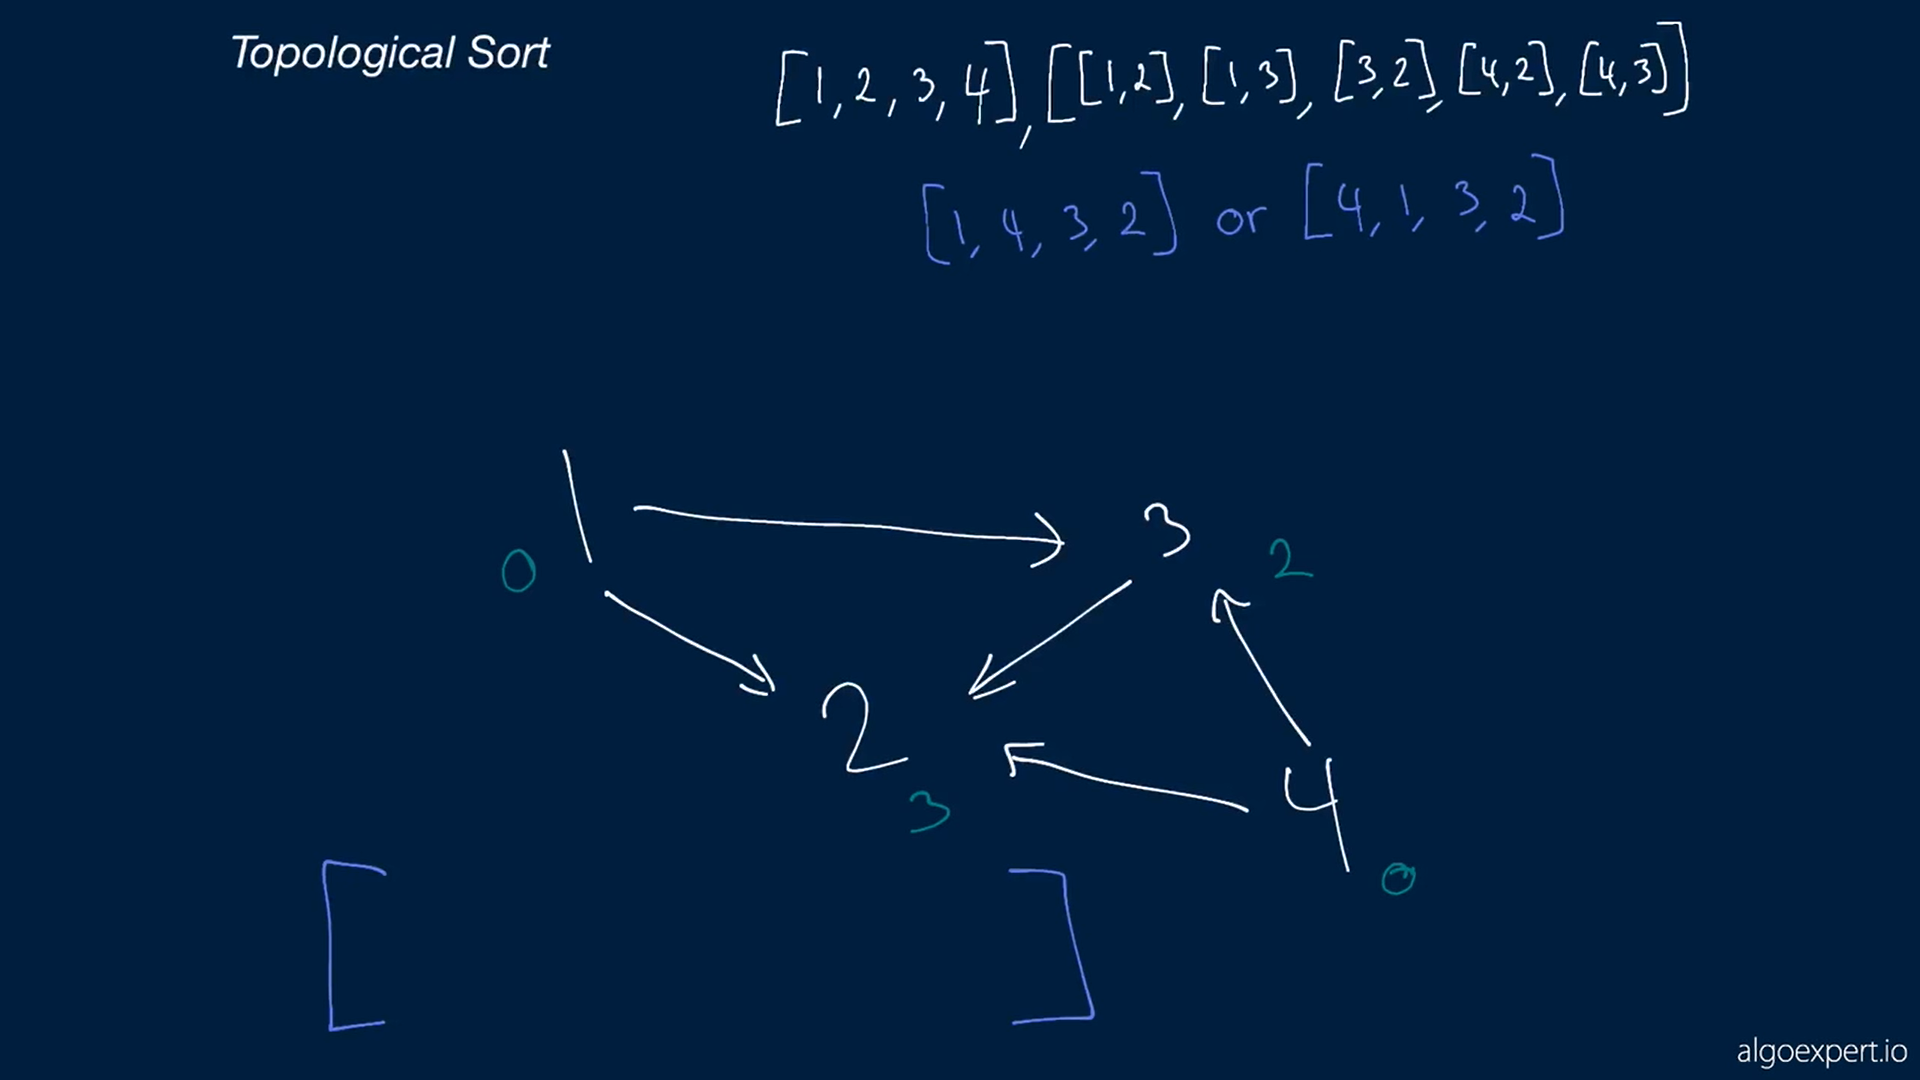 Topological Sort
[1, 2, 3, 4], [[1,2], [1,3], [3,2], [4,2], [4,3]]
[1, 4, 3, 2] or [4, 1, 3, 2]
1
3
0
2
2
4
3
0
[ ]
algoexpert.io